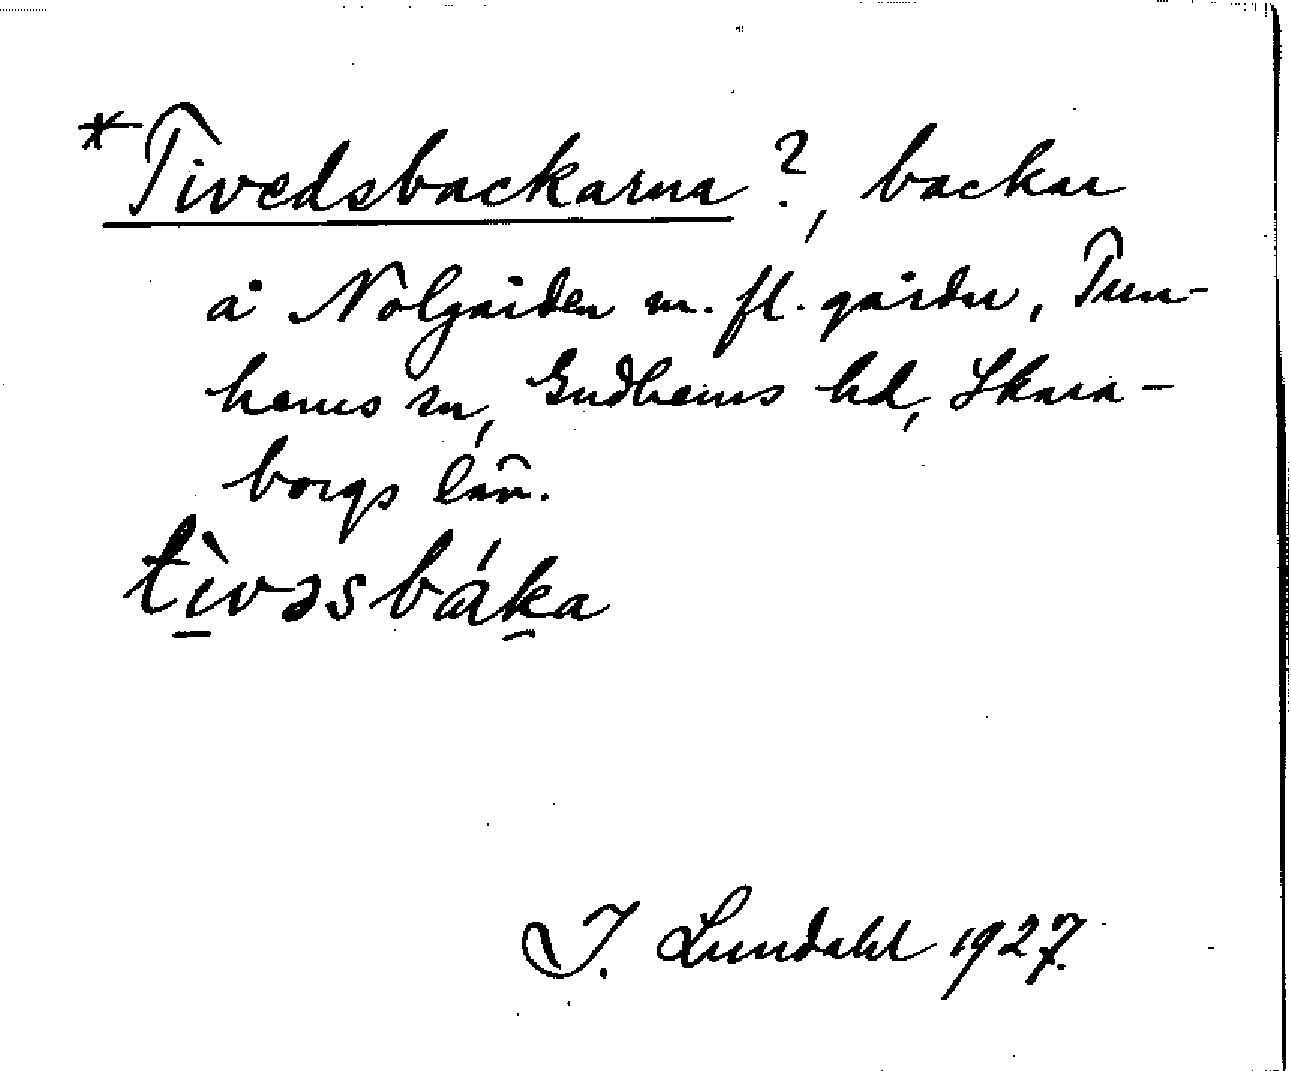 *Tivedsbackarna?, backar
å Nolgården m. fl. gårdar, Tun-
hems sn, Gudhems hd, Skara-
borgs län.
tìvəsbáka
I. Lundahl 1927.